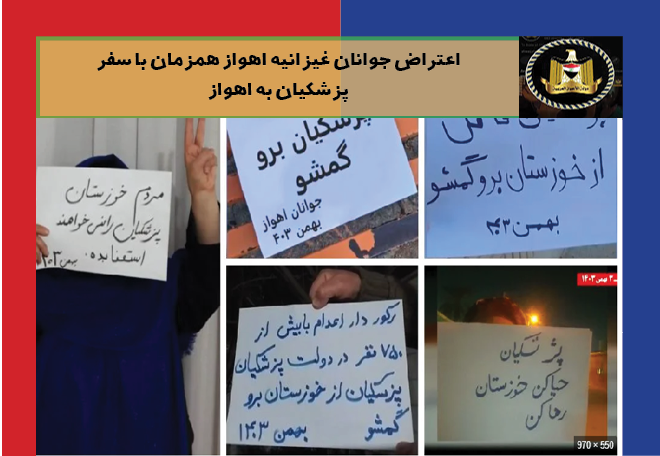 اعتراض جوانان غیزانیه اهواز همزمان با سفر
پزشکیان به اهواز
مردم خوزستان
پزشکیان رانمی‌خواهند
استفا بده.
بهمن ۱۴۰۳
پزشکیان برو
گمشو
جوانان اهواز
بهمن ۴۰۳
از خوزستان برو گمشو
بهمن ۴۰۳
رکورد دار اعدام با بیش از
۷۵۰ نفر در دولت پزشکیان
پزشکیان از خوزستان برو
گمشو بهمن ۱۴۰۳
بهمن ۱۴۰۳
پزشکیان
حیا کن خوزستان
رها کن
970 × 550